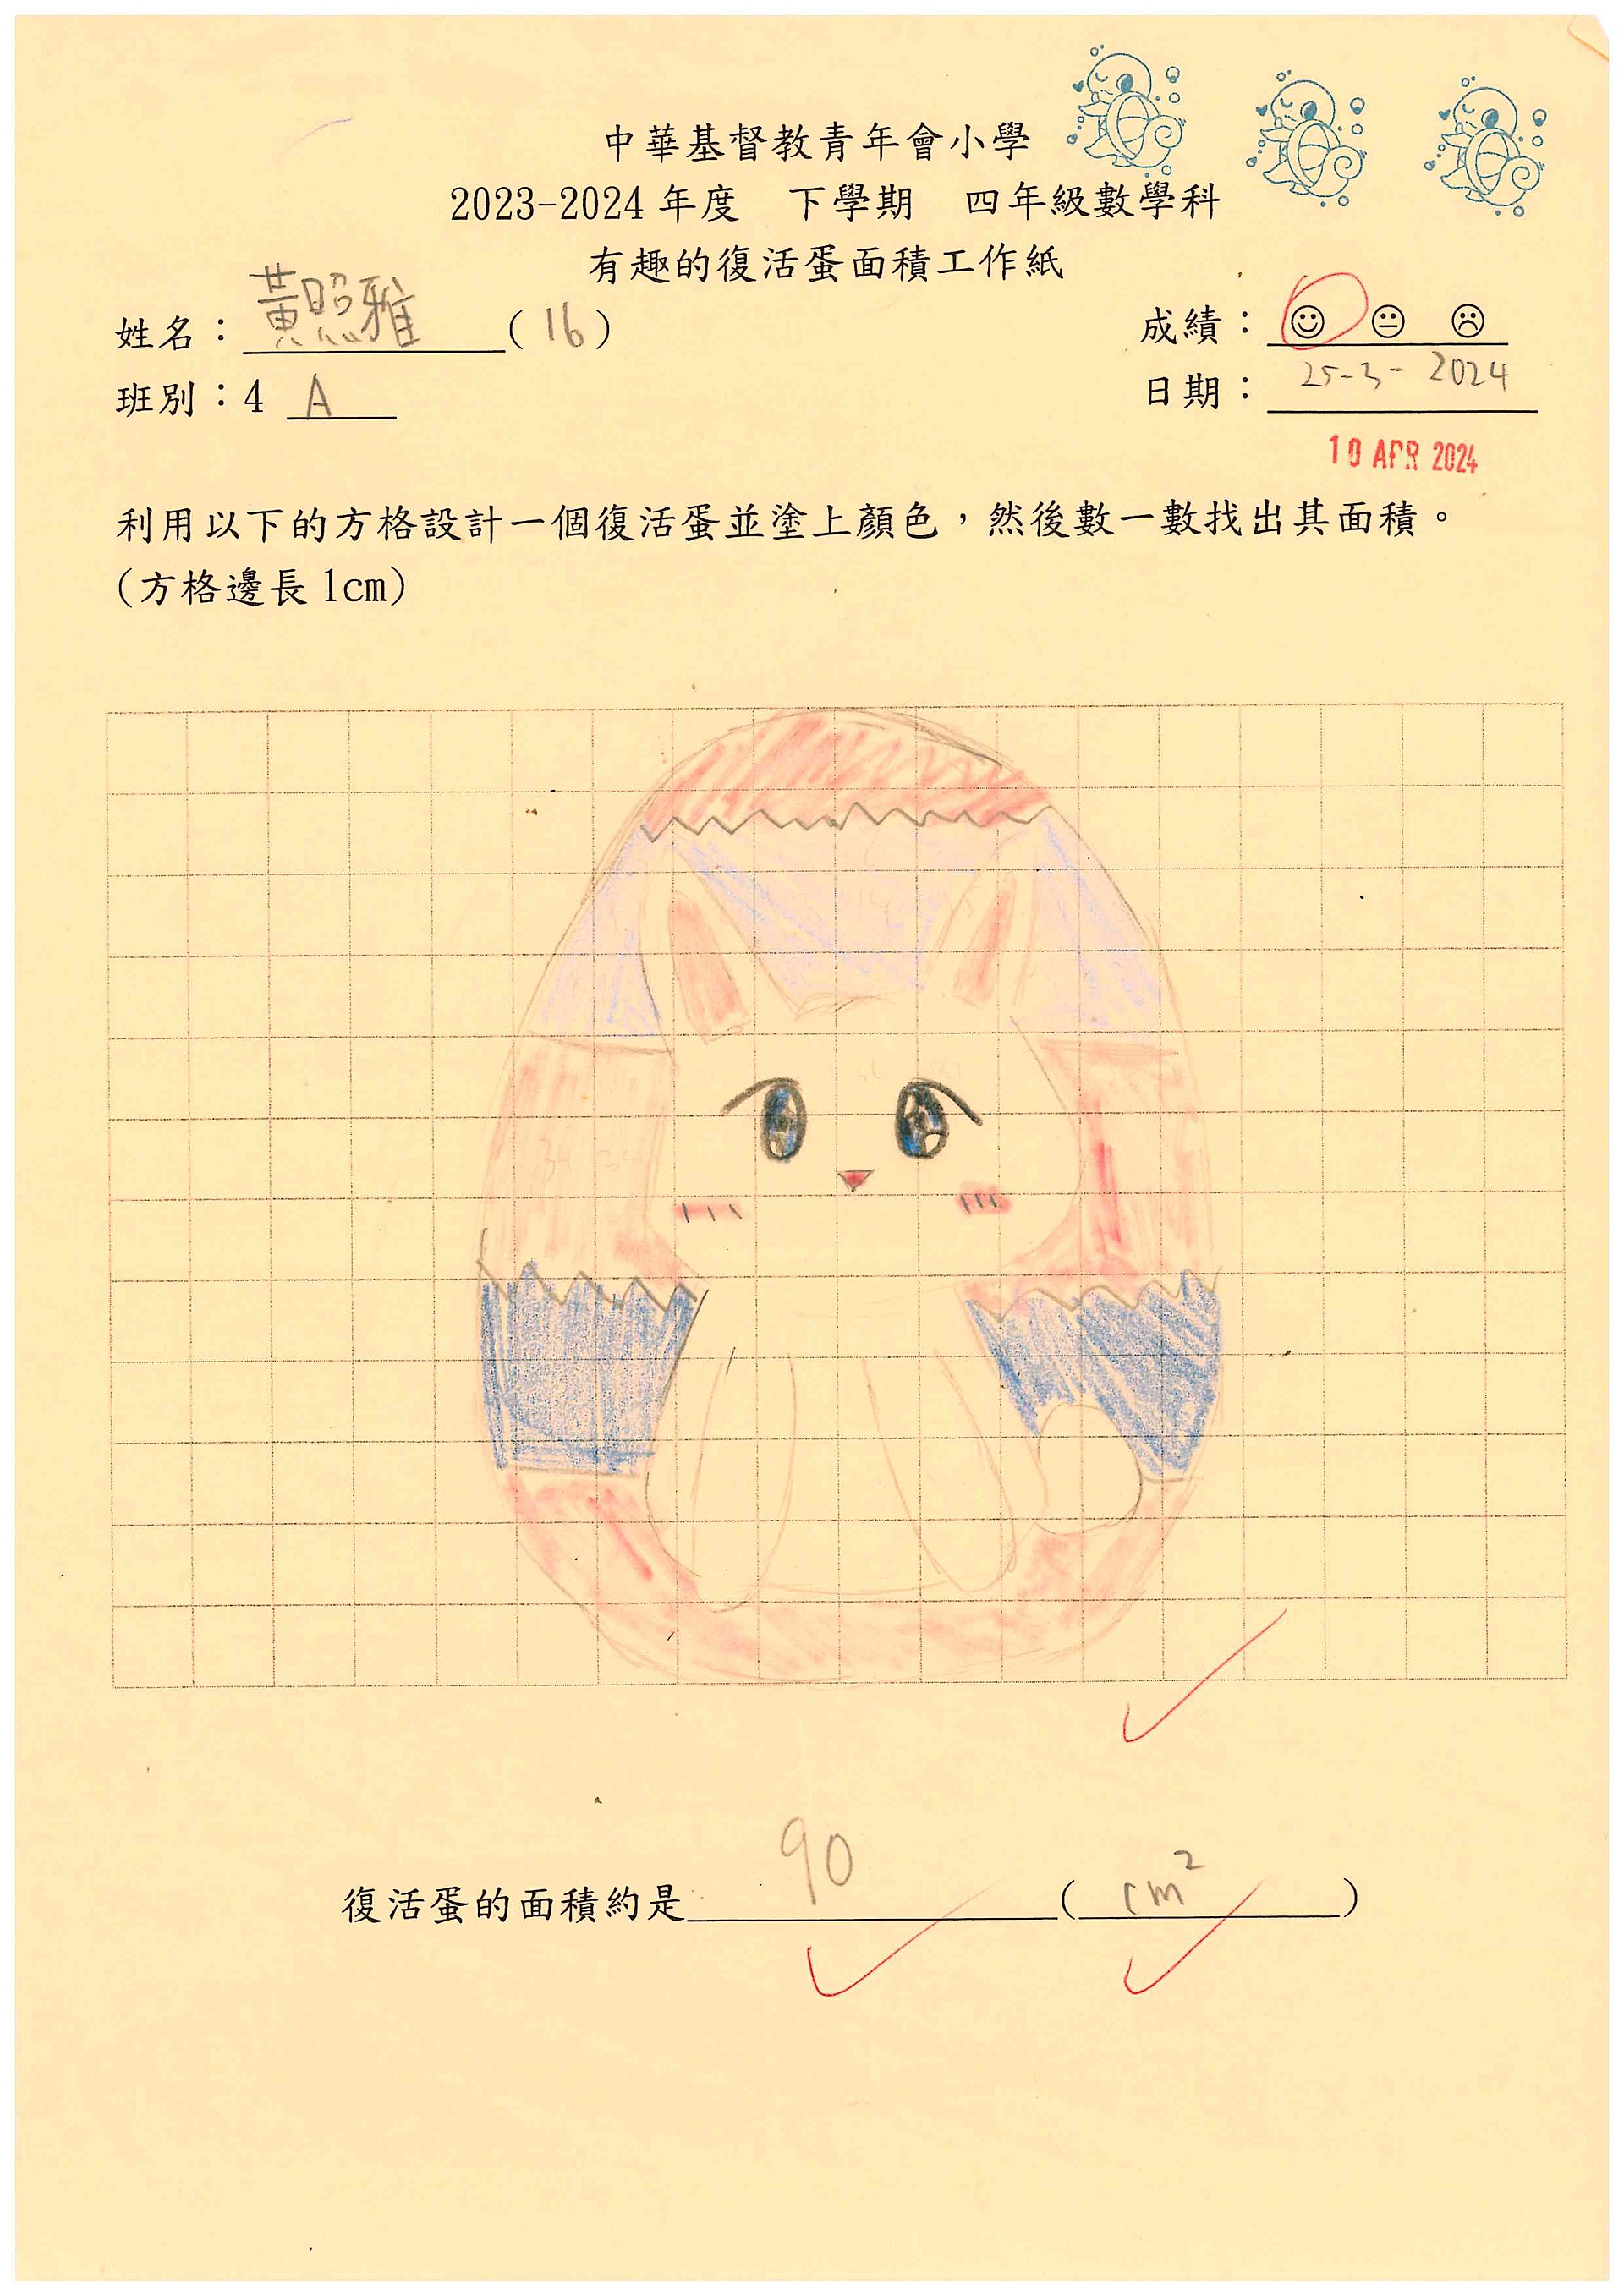 中華基督教青年會小學
2023-2024 年度 下學期 四年級數學科
有趣的復活蛋面積工作紙
姓名：黃照雅(16) 成績：
班別：4 A 日期：25-3-2024
10 APR 2024
利用以下的方格設計一個復活蛋並塗上顏色，然後數一數找出其面積。
(方格邊長 1cm)
復活蛋的面積約是 90 (cm²)